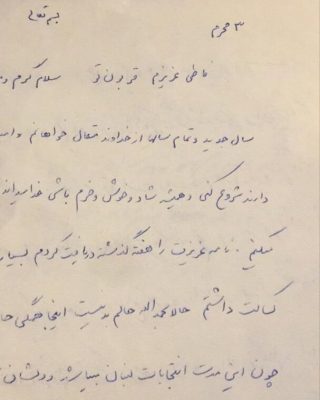 بسمه تعالی
۳ محرم
فاطی عزیزم قربون تو سلام گرم و
سال جدید و تمام سالها از خداوند متعال خواهانم و امید
دارند شروع کنی و همیشه شاد و خوش و خرم باشی خدا میداند
میکنیم. نامه عزیزت را هفته گذشته دریافت کردم بسیار
کسالت داشتم حالا بحمدالله حالم بد نیست اینجا همگی
چون این مدت انتخابات لبنان بود و دلشان